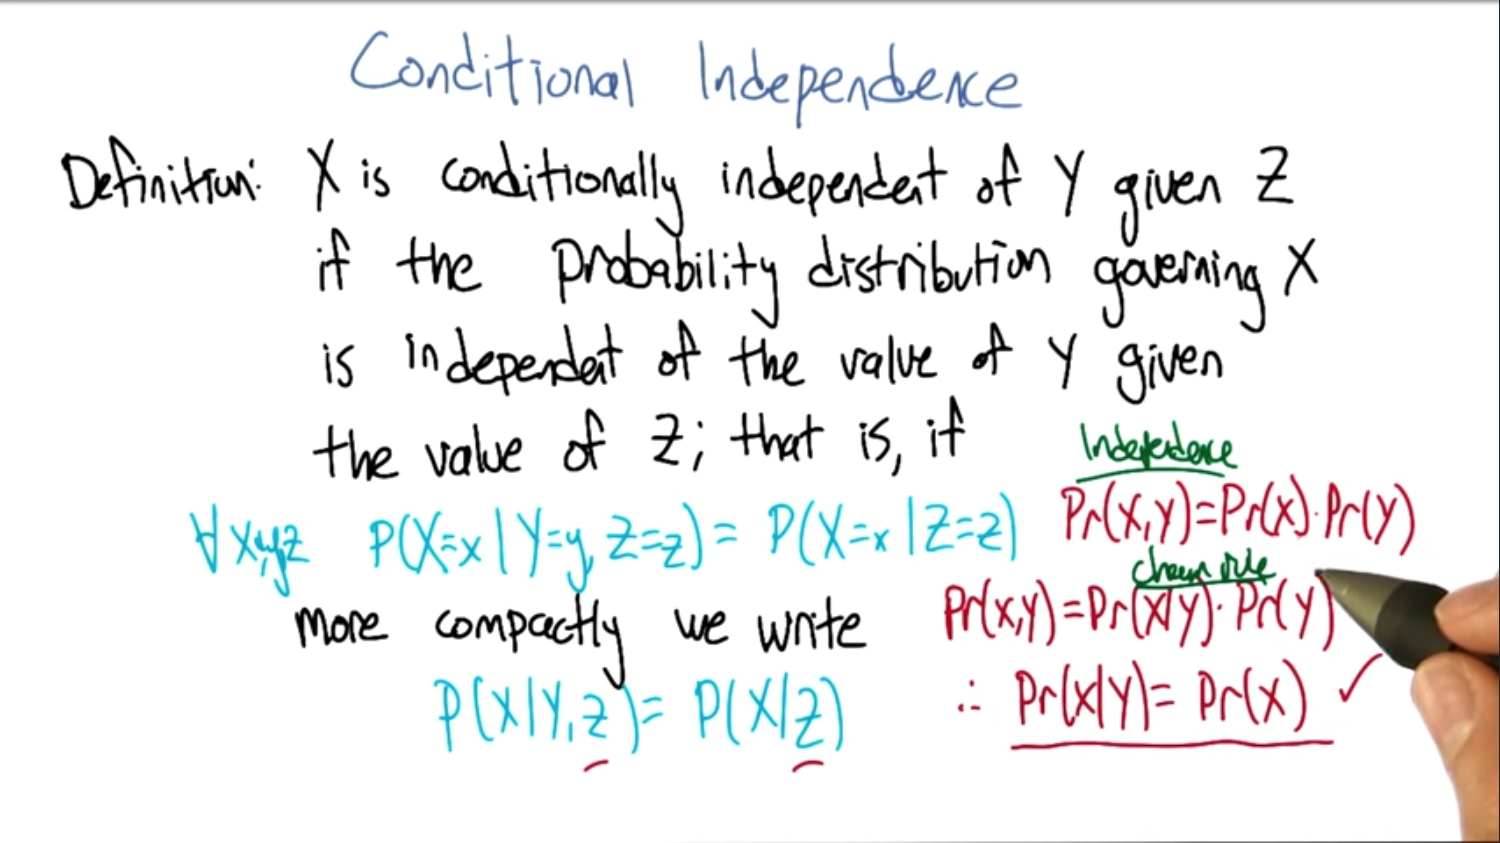 Conditional Independence
Definition: X is conditionally independent of Y given Z
if the probability distribution governing X
is independent of the value of Y given
the value of Z; that is, if
∀x,y,z P(X=x|Y=y, Z=z) = P(X=x|Z=z)
more compactly we write
P(X|Y,Z) = P(X|Z)
Independence
Pr(X,Y)=Pr(X)·Pr(Y)
chain rule
Pr(X,Y)=Pr(X|Y)·Pr(Y)
∴ Pr(X|Y)=Pr(X) ✓